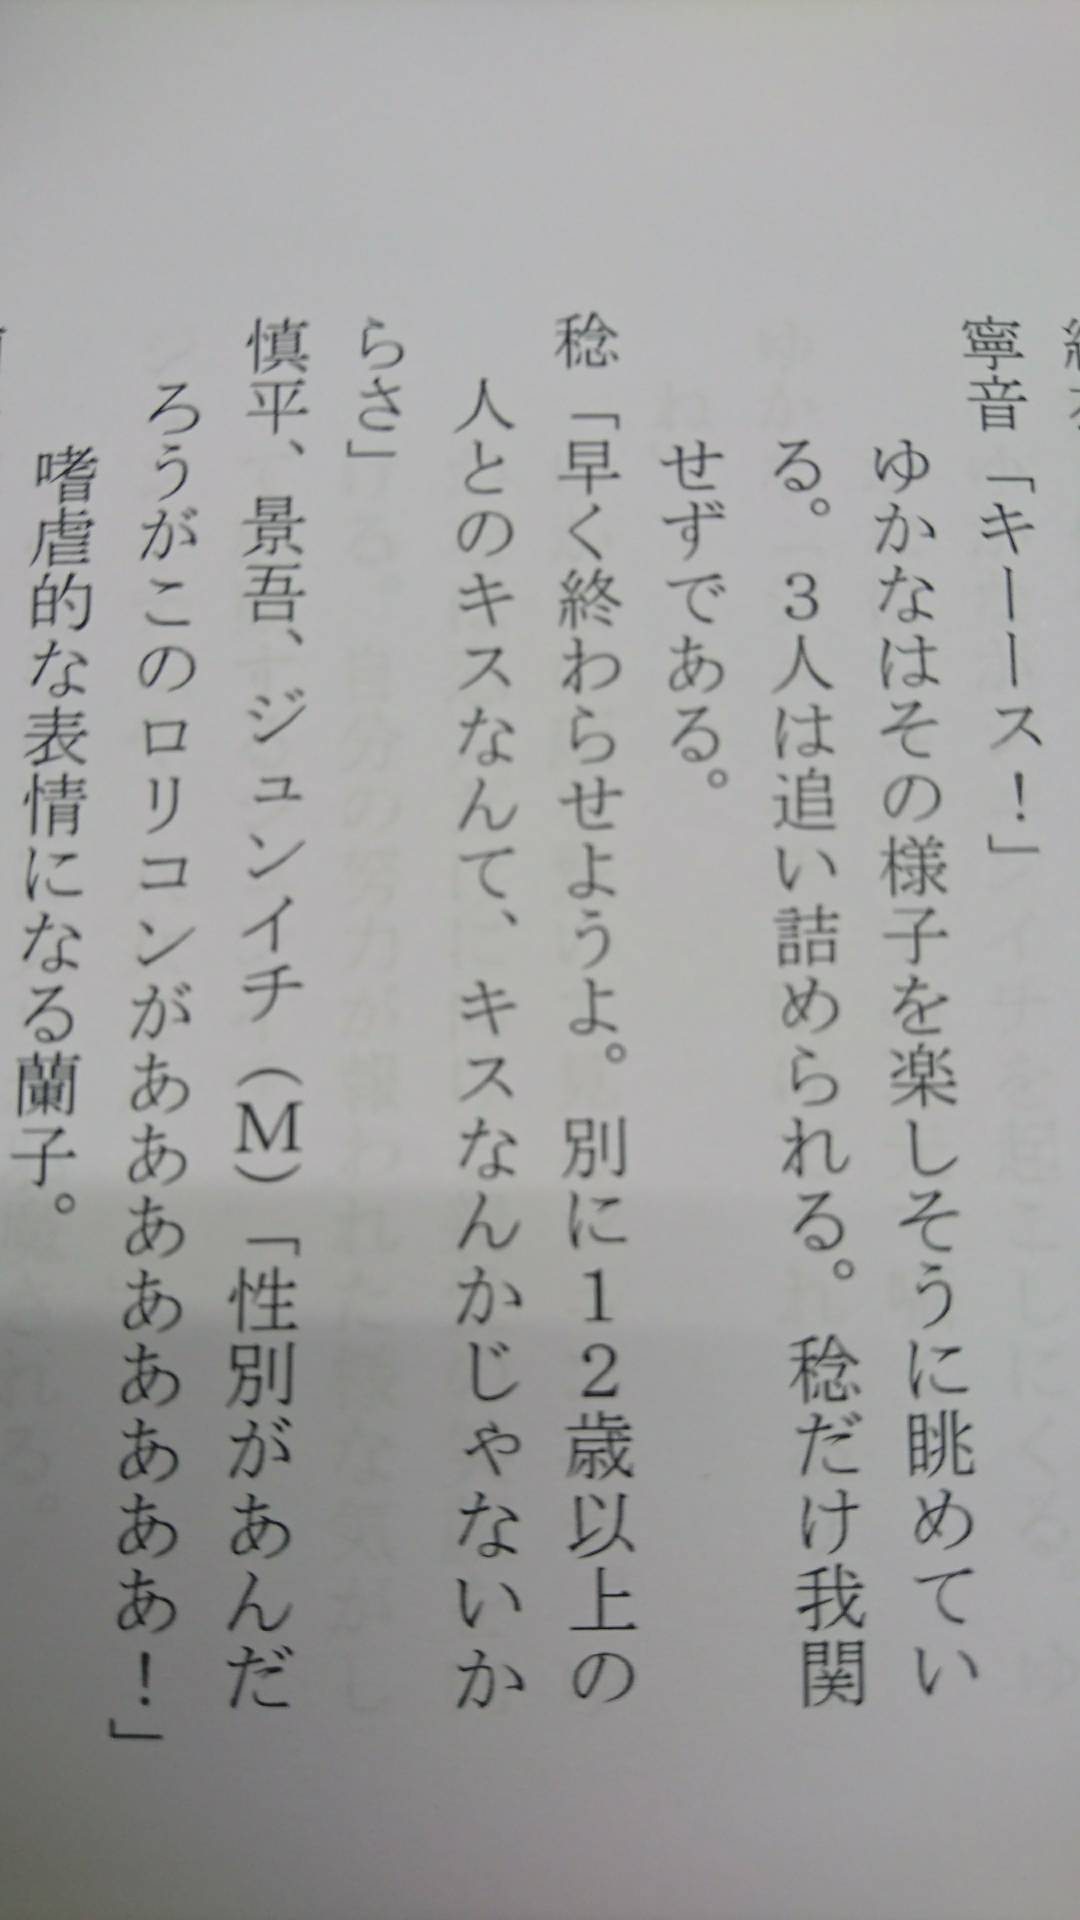 寧音「キーース！」
ゆかなはその様子を楽しそうに眺めてい
る。３人は追い詰められる。稔だけ我関
せずである。
稔「早く終わらせようよ。別に１２歳以上の
人とのキスなんて、キスなんかじゃないか
らさ」
慎平、景吾、ジュンイチ（Ｍ）「性別があんだ
ろうがこのロリコンがああああああああ！」
嗜虐的な表情になる蘭子。